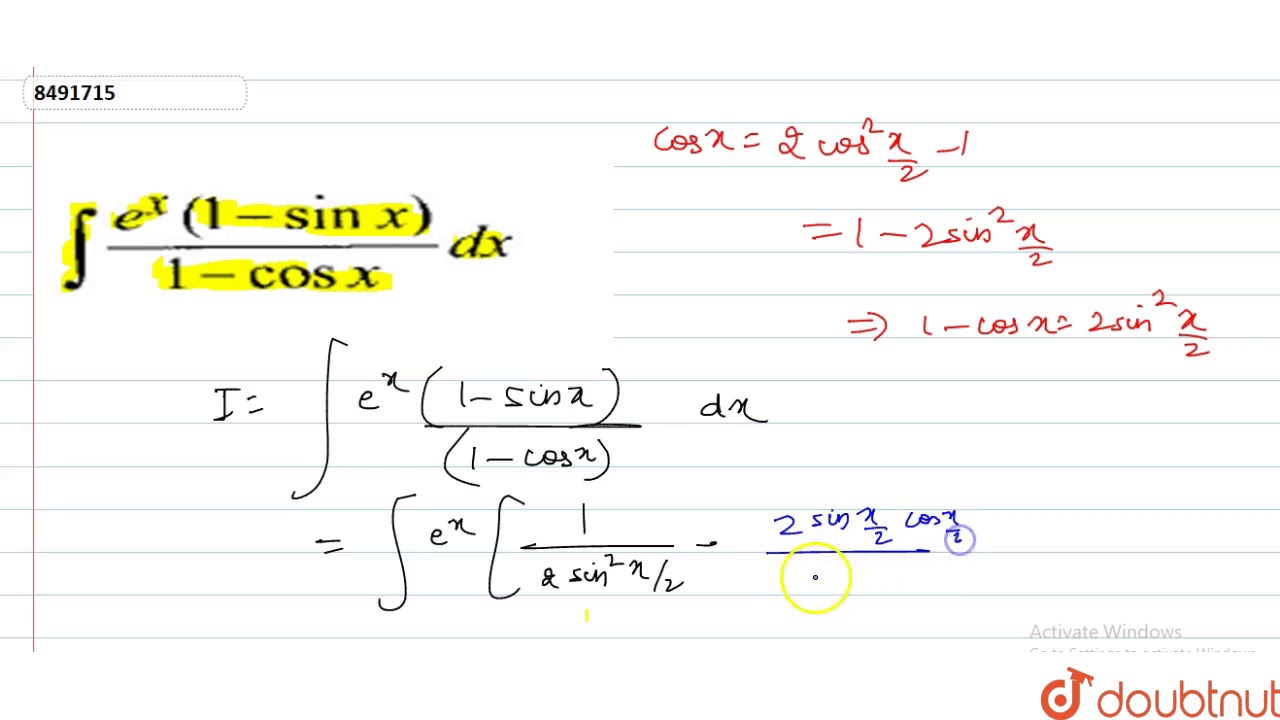 8491715
cos x = 2 cos² x/2 - 1
= 1 - 2 sin² x/2
⇒ 1 - cos x = 2 sin² x/2
∫ e^x (1 - sin x) / 1 - cos x dx
I = ∫ e^x (1 - sin x) / (1 - cos x) dx
= ∫ e^x [ 1 / 2 sin² x/2 - 2 sin x/2 cos x/2
Activate Windows
Go to Settings to activate Windows.
doubtnut